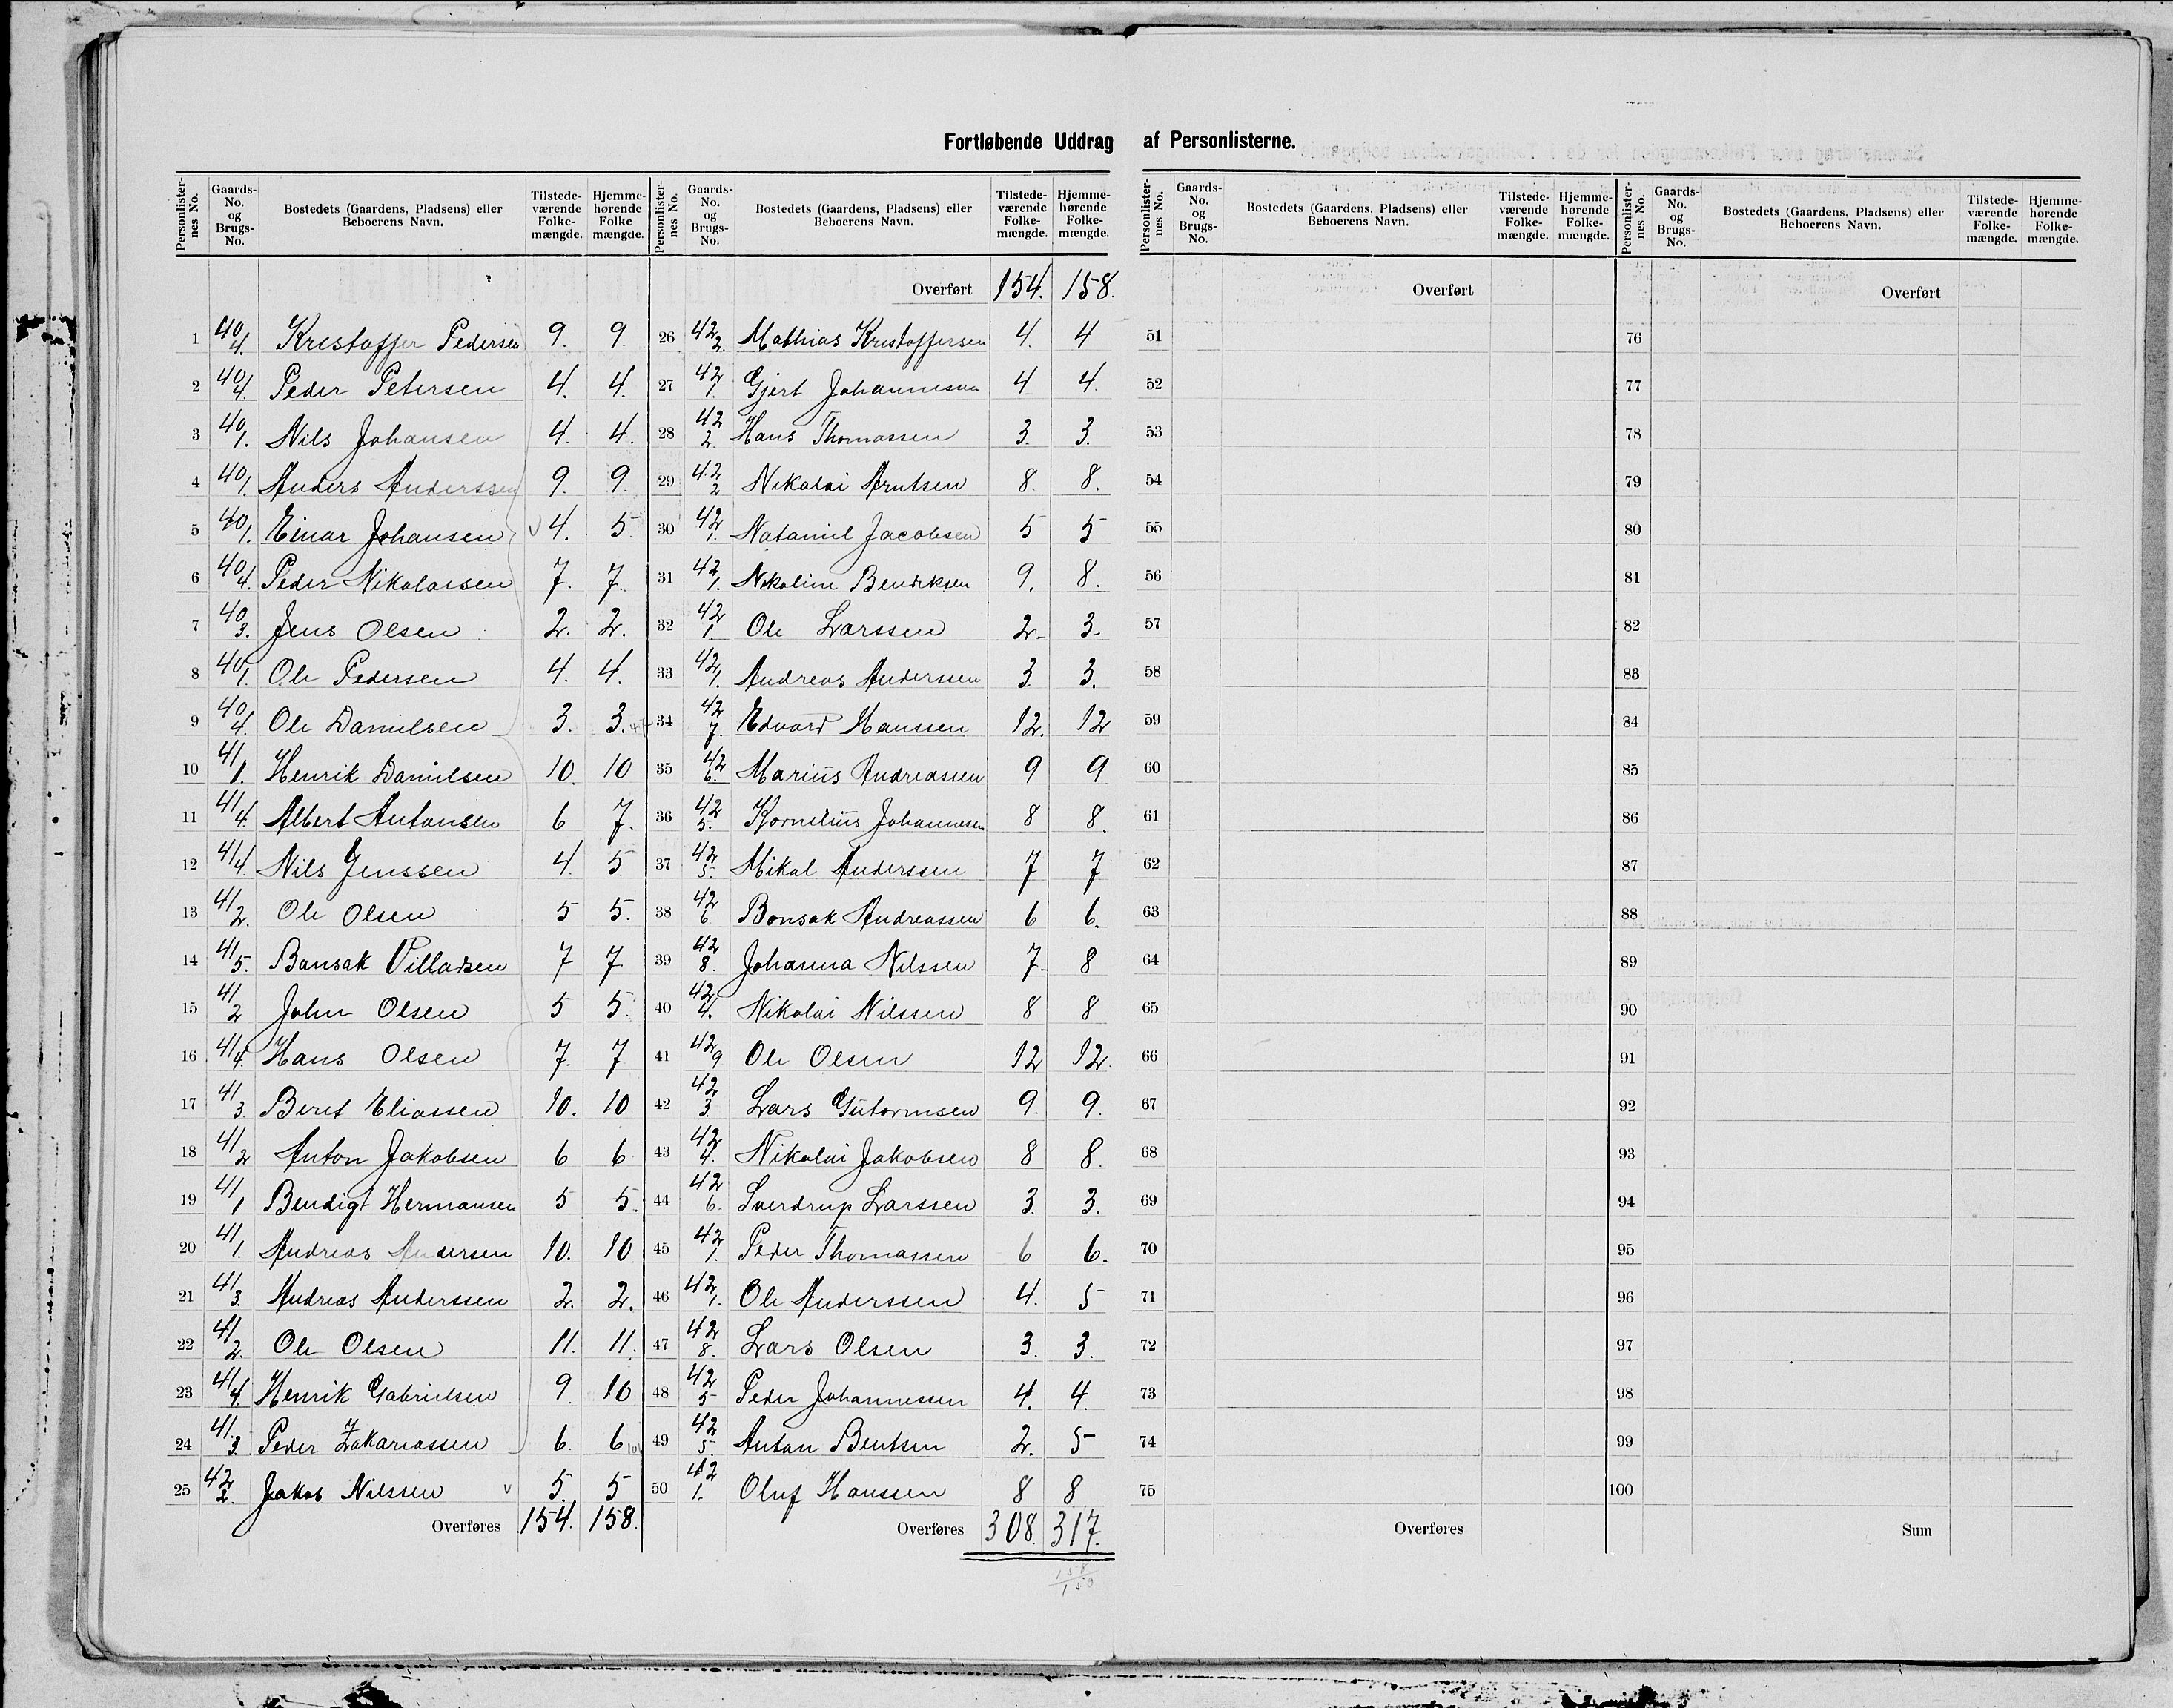 Fortløbende Uddrag af Personlisterne.
Personlister-nes No. Gaards-No. og Brugs-No. Bostedets (Gaardens, Pladsens) eller Beboerens Navn. Tilstede-værende Folke-mængde. Hjemme-hørende Folke mængde. Personlister-nes No. Gaards-No. og Brugs-No. Bostedets (Gaardens, Pladsens) eller Beboerens Navn. Tilstede-værende Folke-mængde. Hjemme-hørende Folke-mængde.
1 40/4. Kristoffer Pedersen 9. 9
2 40/4. Peder Petersen 4. 4.
3 40/1. Nils Johansen 4. 4.
4 40/1. Anders Anderssen 9. 9.
5 40/1. Einar Johansen v 4. 5
6 40/4. Peder Nikolaisen 7. 7.
7 40/3. Jens Olsen 2. 2.
8 40/1. Ole Pedersen 4. 4.
9 40/4. Ole Danielsen 3. 3.
10 41/1. Henrik Danielsen 10. 10
11 41/4. Albert Antonsen 6 7.
12 41/4. Nils Jenssen 4. 5
13 41/2. Ole Olsen 5 5.
14 41/5. Bansak Villadsen 7 7
15 41/2 John Olsen 5 5.
16 41/4. Hans Olsen 7. 7
17 41/3. Berit Eliassen 10. 10
18 41/2 Anton Jakobsen 6 6
19 41/1 Bendigt Hermansen 5 5.
20 41/1. Andreas Andersen 10. 10
21 41/3. Andreas Anderssen 2. 2.
22 41/2. Ole Olsen 11. 11.
23 41/4. Henrik Gabrielsen 9. 10
24 41/3. Peder Zakariassen 6. 6
25 42/2. Jakob Nilssen v 5. 5
Overføres 154. 158.
Overført 154. 158.
26 42/2. Mathias Kristoffersen 4. 4
27 42/1. Gjert Johannesen 4 4.
28 42/2. Hans Thomassen 3. 3.
29 42/2 Nikolai Arntsen 8. 8.
30 42/1. Natanil Jacobsen 5 5
31 42/1. Nikoline Bendiksen 9. 8.
32 42/1. Ole Larssen 2. 3.
33 42/1. Andreas Anderssen 3 3.
34 42/7. Edvard Hanssen 12. 12
35 42/6. Marius Andreassen 9 9
36 42/5. Kornelius Johannesen 8 8.
37 42/5. Mikal Anderssen 7 7
38 42/6. Bonsak Andreassen 6 6.
39 42/8. Johanna Nilssen 7 8
40 42/4. Nikolai Nilssen 8 8
41 42/9 Ole Olsen 12 12.
42 42/3. Lars Gutormsen 9. 9.
43 42/4. Nikolai Jakobsen 8 8.
44 42/6. Sverdrup Larssen 3. 3.
45 42/1. Peder Thomassen 6 6.
46 42/1. Ole Anderssen 4. 5
47 42/8. Lars Olsen 3. 3.
48 42/5 Peder Johannessen 4. 4.
49 42/5. Anton Bentsen 2. 5
50 42/1. Oluf Hanssen 8 8
Overføres 308. 317.
Personlister-nes No. Gaards-No. og Brugs-No. Bostedets (Gaardens, Pladsens) eller Beboerens Navn. Tilstede-værende Folke-mængde. Hjemme-hørende Folke-mængde. Personlister-nes No. Gaards-No. og Brugs-No. Bostedets (Gaardens, Pladsens) eller Beboerens Navn. Tilstede-værende Folke-mængde. Hjemme-hørende Folke-mængde.
Overført
51
52
53
54
55
56
57
58
59
60
61
62
63
64
65
66
67
68
69
70
71
72
73
74
75
Overføres
Overført
76
77
78
79
80
81
82
83
84
85
86
87
88
89
90
91
92
93
94
95
96
97
98
99
100
Sum